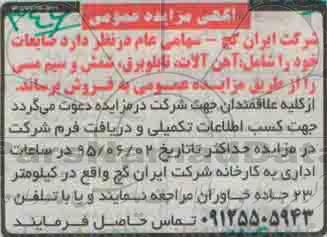 آگهی مزایده عمومی
شرکت ایران گچ - سهامی عام درنظر دارد ضایعات
خود را شامل:آهن آلات، تابلوبرق، شمش و سیم مسی
را از طریق مزایـده عمومی به فـروش برساند.
ازکلیه علاقمندان جهت شرکت در مزایده دعوت می‌گردد
جهت کسب اطلاعات تکمیلی و دریافت فرم شرکت
در مزایده حداکثر تاتاریخ ۹۵/۰۶/۰۲ در ساعات
اداری به کارخانه شرکت ایران گچ واقع در کیلومتر
۲۳ جاده خاوران مراجعه نمایند و یا با تـلفـن
۰۹۱۲۵۵۰۵۹۴۳ تماس حاصل فـرمایند